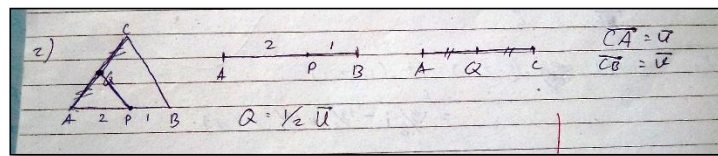 2)
C
Q
A 2 P 1 B
2 1
A P B
A Q C
CA = u
CB = v
Q = 1/2 u